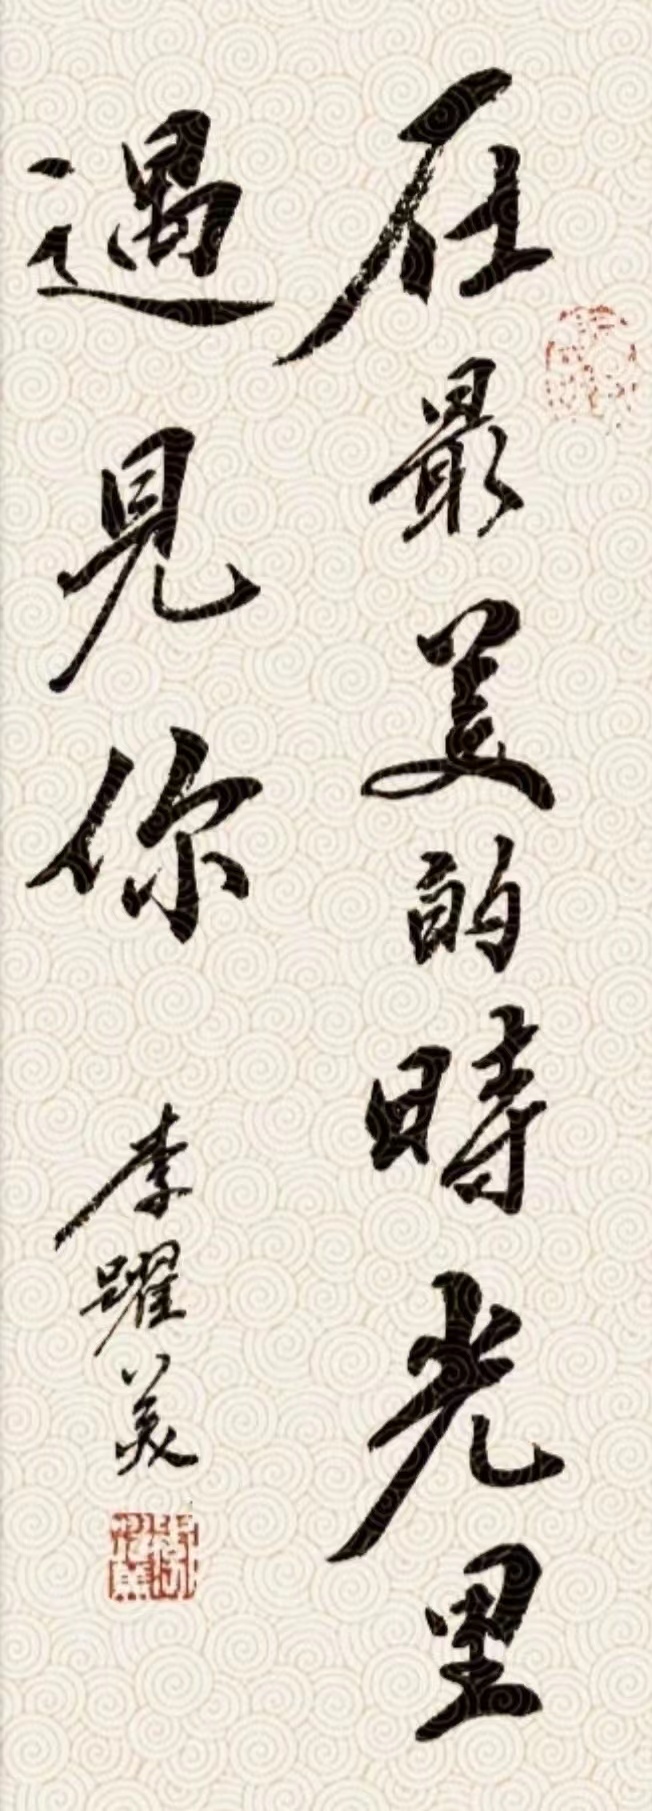 在最美的時光里
遇見你
李躍美